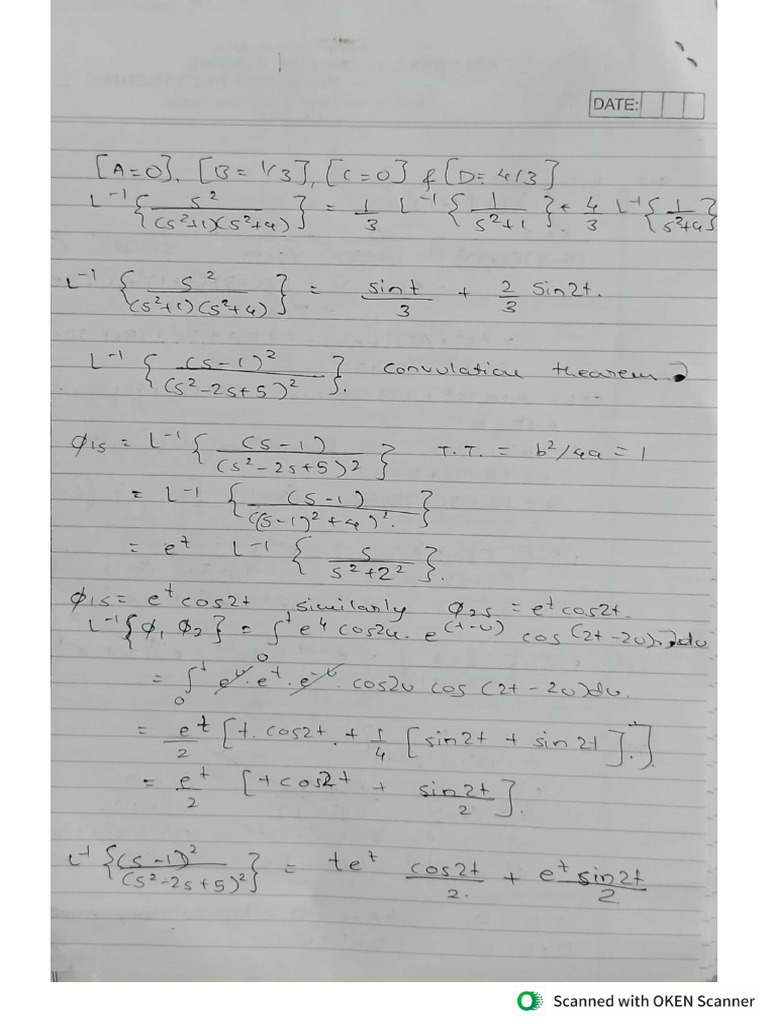 DATE:
[A=0], [B= 1/3], [C=0] & [D= 4/3]
L⁻¹ { s² / (s²+1)(s²+4) } = 1/3 L⁻¹ { 1 / s²+1 } + 4/3 L⁻¹ { 1 / s²+4 }
L⁻¹ { s² / (s²+1)(s²+4) } = sint / 3 + 2/3 sin2t.
L⁻¹ { (s-1)² / (s²-2s+5)² }. convulation theorem
ϕ1s = L⁻¹ { (s-1) / (s²-2s+5)² } T.T. = b²/4a = 1
= L⁻¹ { (s-1) / ((s-1)²+4)². }
= eᵗ L⁻¹ { s / s²+2² }.
ϕ1s = eᵗcos2t similarly ϕ2s = eᵗcos2t.
L⁻¹{ϕ, ϕ2} = ∫₀ᵗ eᵘ cos2u. e^(t-u) cos (2t-2u). du
= ∫₀ᵗ eᵘ. eᵗ. e⁻ᵘ. cos2u cos (2t-2u)du.
= eᵗ/2 [t. cos2t. + 1/4 [sin2t + sin2t].].
= eᵗ/2 [t cos2t + sin2t / 2].
L⁻¹ { (s-1)² / (s²-2s+5)² } = teᵗ cos2t / 2. + eᵗ sin2t / 2
Scanned with OKEN Scanner